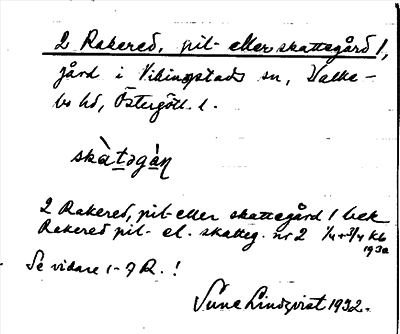 2 Rakered, pil- eller skattegård 1,
gård i Vikingstads sn, Valke-
bo hd, Östergötl. l.
skàtəgàn
2 Rakered, pil- eller skattegård 1 bek
Rakered pil- el. skatteg. nr 2 1/4+3/4 kb
1930
Se vidare 1-7 R. !
Sune Lindqvist 1932.